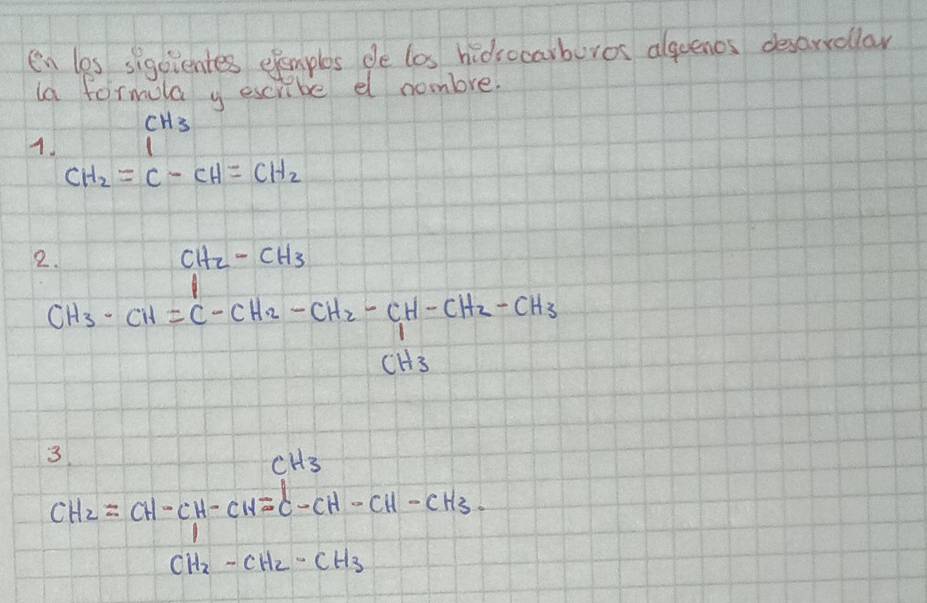 En los siguientes ejemplos de los hidrocarburos alquenos desarrollar
la formula y escribe el nombre.
CH3
1.
CH2 = C - CH = CH2
2. CH2 - CH3
CH3 - CH = C - CH2 - CH2 - CH - CH2 - CH3
CH3
3.
CH3
CH2 = CH - CH - CH = C - CH - CH - CH3.
CH2 - CH2 - CH3